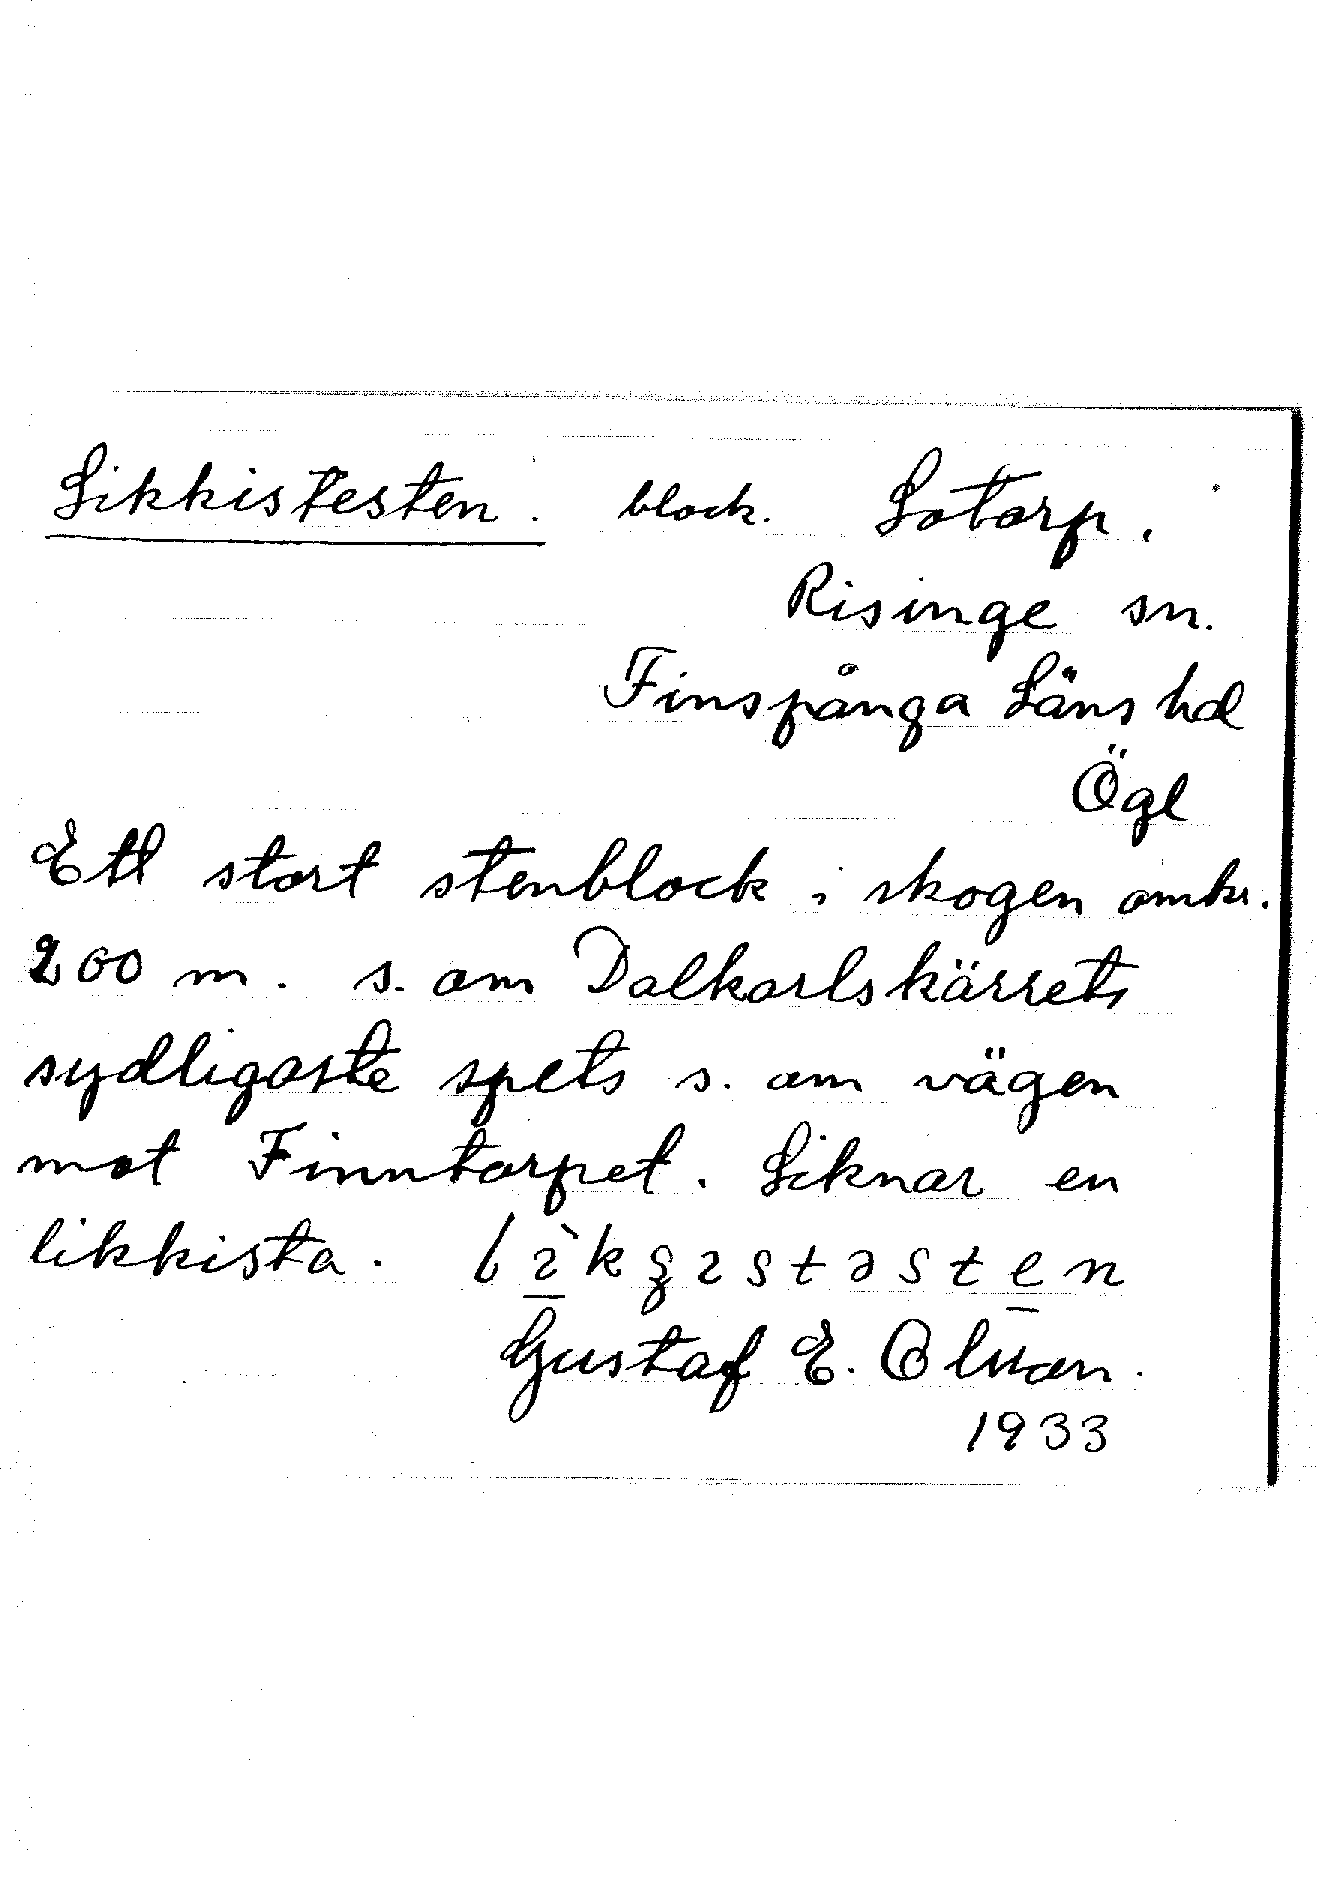 Likkistesten. block. Lotorp.
Risinge sn.
Finspånga Läns hd
Ögl
Ett stort stenblock i skogen omkr.
200 m. s. om Dalkarlskärrets
sydligaste spets s. om vägen
mot Finntorpet. Liknar en
likkista.
Gustaf E. Olsson.
1933